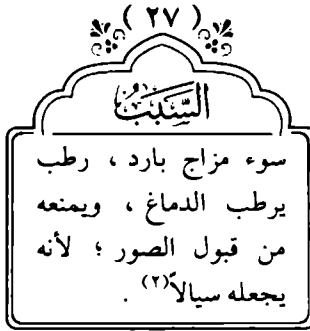 ( ٢٧ )
السَّبَبُ
سوء مزاج بارد ، رطب
يرطب الدماغ ، ويمنعه
من قبول الصور ؛ لأنه
يجعله سيالاً(٢) .